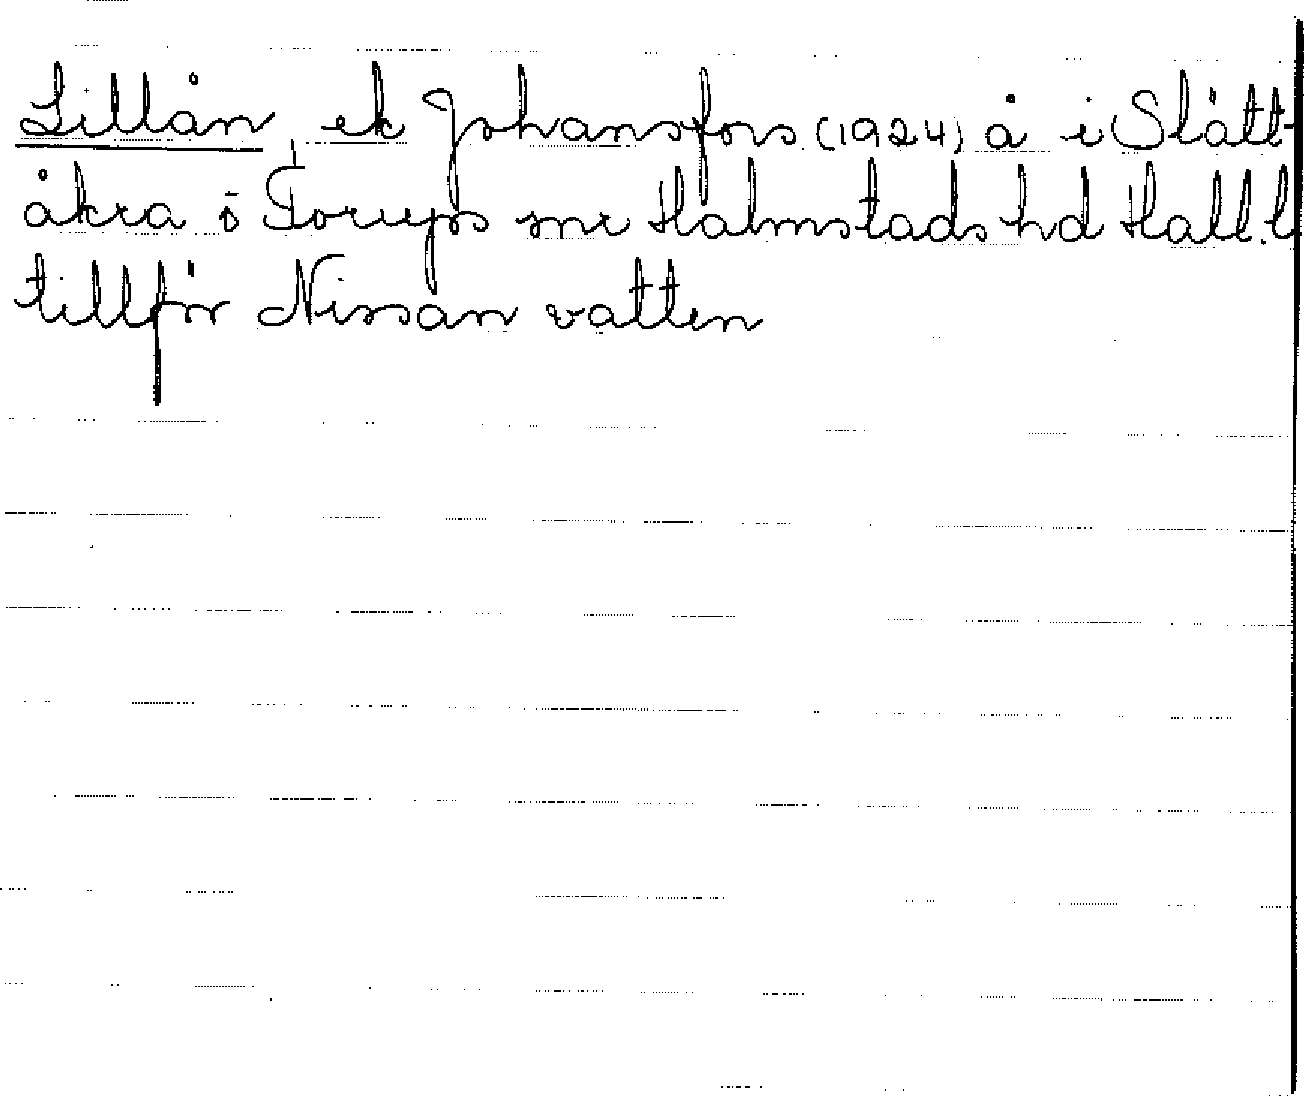 Lillån, ek Johansfors (1924) å i Slätt-
åkra o Torups snr Halmstads hd Hall.l
tillför Nissan vatten